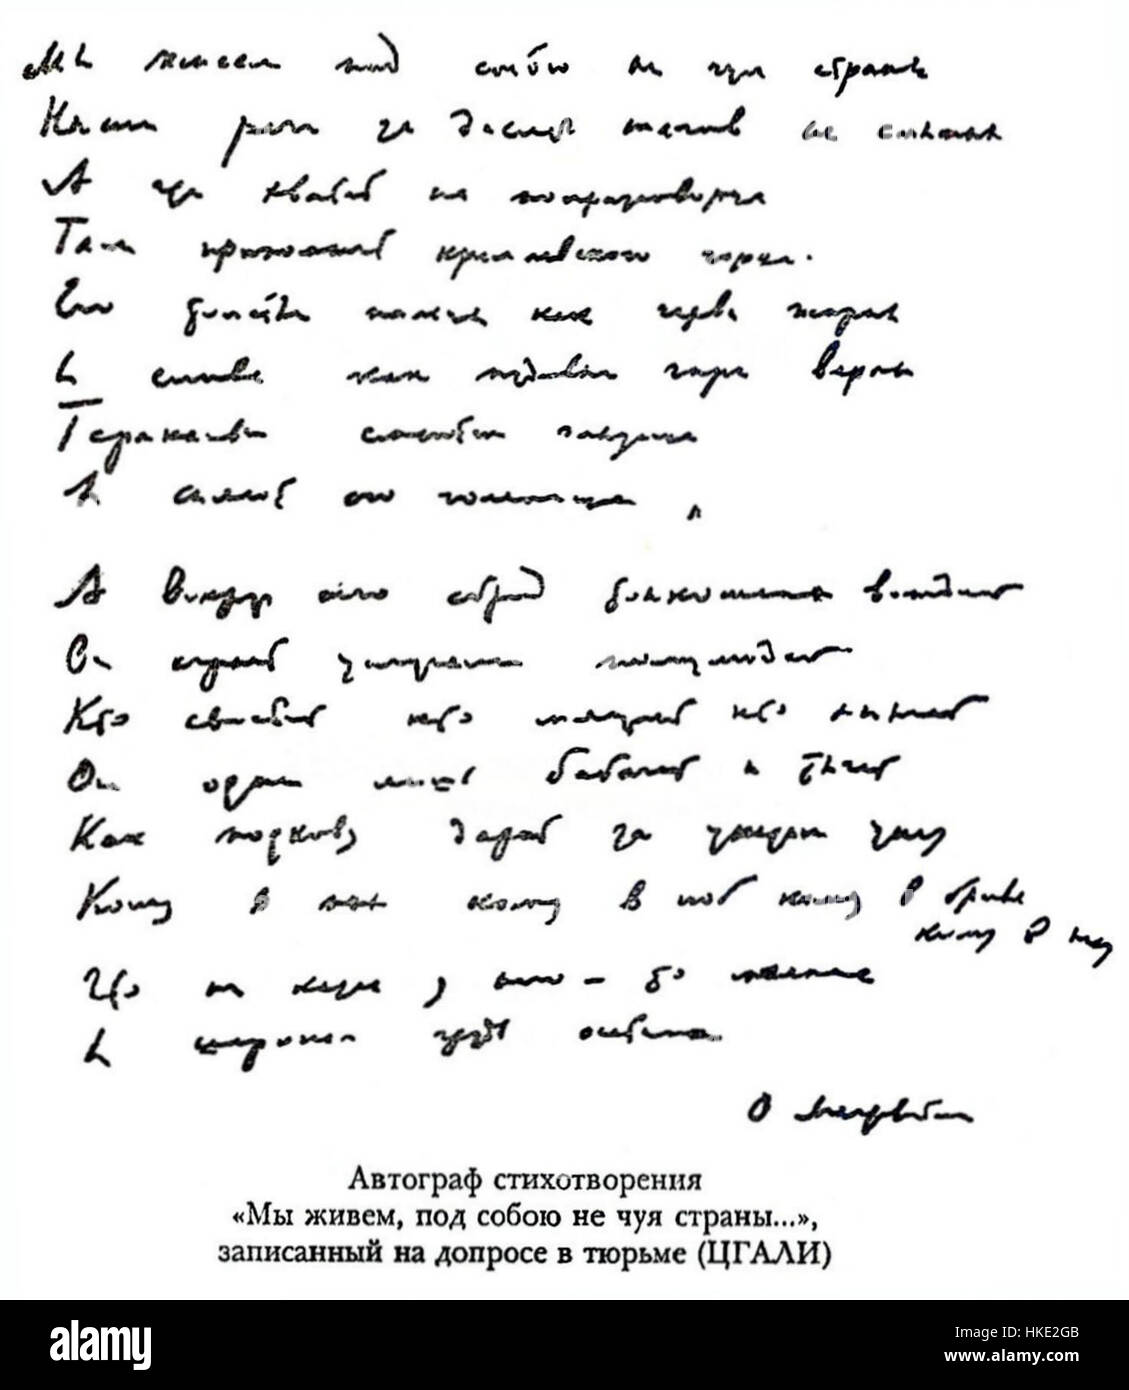 Мы живем под собою не чуя страны
Наши речи за десять шагов не слышны
А где хватит на полразговорца
Там припомнят кремлевского горца.
Его толстые пальцы как черви жирны
И слова как пудовые гири верны
Тараканьи смеются глазища
И сияют его голенища
А вокруг его сброд тонкошеих вождей
Он играет услугами полулюдей
Кто свистит кто мяучит кто хнычет
Он один лишь бабачит и тычет
Как подкову дарит за указом указ
Кому в пах кому в лоб кому в бровь
кому в глаз
Что ни казнь у него - то малина
И широкая грудь осетина
О Мандельштам
Автограф стихотворения
«Мы живем, под собою не чуя страны...»,
записанный на допросе в тюрьме (ЦГАЛИ)
alamy
Image ID: HKE2GB
www.alamy.com